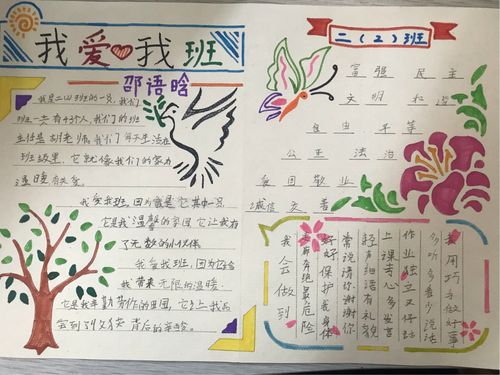 我爱我班
邵语晗
我是二(2)班的一员,我们
班一共有43个人,我们的班
主任是胡老师,我们每天生活在
班级里,它就像我们的家为
温暖
我爱我班,因为我是它其中一员
它是我温馨的家园它让我为
了无数的小伙伴
我爱我班,因为它给
我带来无限的温暖。
它是我辛勤劳作的果园,它让我
会到
背后的辛勤。
二(2)班
富强 民主
文明 和谐
自由 平等
公正 法治
爱国 敬业
诚信 友善
我用巧手做好事
多听多看少说话
作业独立又仔细
上课专心多发言
轻声细语有礼貌
常说请你谢谢你
好好保护我身体
危险
我会做到